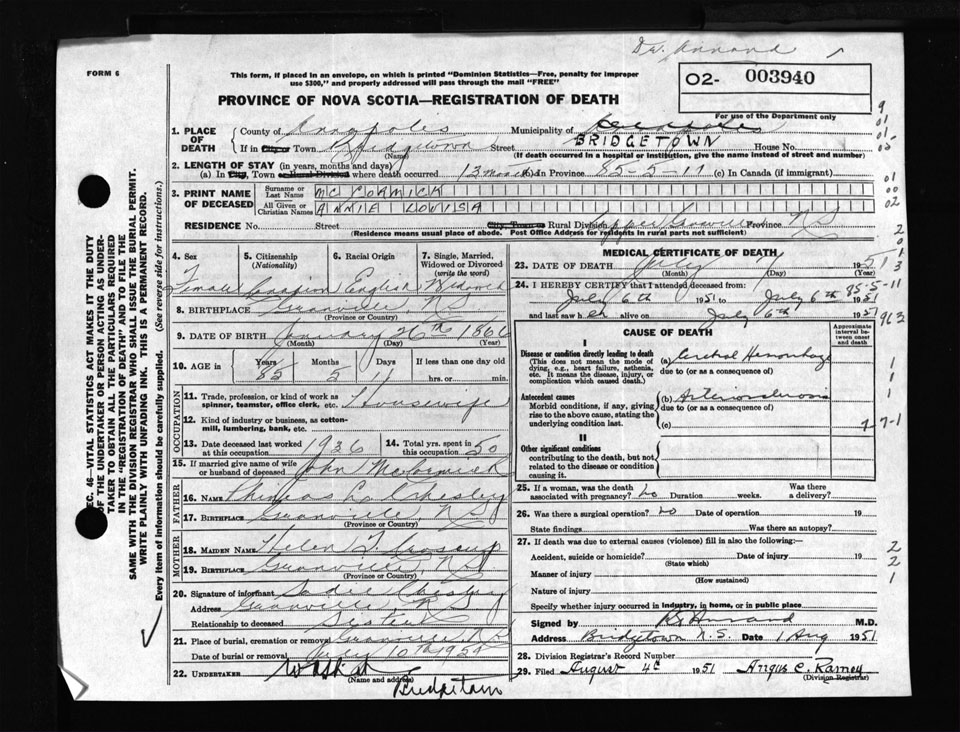 Dr. Annand
FORM 6
This form, if placed in an envelope, on which is printed "Dominion Statistics—Free, penalty for improper
use $300," and properly addressed will pass through the mail "FREE"
O2- 003940
For use of the Department only
PROVINCE OF NOVA SCOTIA—REGISTRATION OF DEATH
1. PLACE OF DEATH
County of Annapolis Municipality of
If in City or Town Bridgetown Street BRIDGETOWN House No.
(Name) (If death occurred in a hospital or institution, give the name instead of street and number)
2. LENGTH OF STAY (in years, months and days)
(a) In City, Town or Rural Division where death occurred 13 (b) In Province 85-5-11 (c) In Canada (if immigrant)
3. PRINT NAME OF DECEASED
Surname or Last Name MC CORMICK
All Given or Christian Names ANNIE LOUISA
RESIDENCE No. Street City Town or Rural Division Upper Granville Province NS
(Residence means usual place of abode. Post Office Address for residents in rural parts not sufficient)
4. Sex 5. Citizenship (Nationality) 6. Racial Origin 7. Single, Married, Widowed or Divorced (write the word)
Female Canadian English Widowed
8. BIRTHPLACE Granville, N S
(Province or Country)
9. DATE OF BIRTH January 26th 1866
(Month) (Day) (Year)
10. AGE in Years Months Days If less than one day old
85 5 11 hrs. or min.
OCCUPATION
11. Trade, profession, or kind of work as
spinner, teamster, office clerk, etc. Housewife
12. Kind of industry or business, as cotton-
mill, lumbering, bank, etc.
13. Date deceased last worked at this occupation 1936 14. Total yrs. spent in this occupation 50
15. If married give name of wife or husband of deceased John McCormick
FATHER
16. NAME Phineas Chesley
17. BIRTHPLACE Granville, N S
(Province or Country)
MOTHER
18. MAIDEN NAME Helen T. Croscup
19. BIRTHPLACE Granville, N S
(Province or Country)
20. Signature of informant Sadie Chesley
Address Granville, N S
Relationship to deceased Sister
21. Place of burial, cremation or removal Granville N S
Date of burial or removal July 10th 1951
22. UNDERTAKER
Bridgetown
MEDICAL CERTIFICATE OF DEATH
23. DATE OF DEATH July 1951
(Month) (Day) (Year)
24. I HEREBY CERTIFY that I attended deceased from 85-5-11
July 6th 1951 to July 6th 1951
and last saw her alive on July 6th 1951
CAUSE OF DEATH
Approximate interval between onset and death
I
Disease or condition directly leading to death (a) Cerebral Hemorrhage
(This does not mean the mode of dying, e.g., heart failure, asthenia, etc. It means the disease, injury, or complication which caused death.)
due to (or as a consequence of)
Antecedent causes (b) Arteriosclerosis
Morbid conditions, if any, giving rise to the above cause, stating the underlying condition last.
due to (or as a consequence of)
(c)
II
Other significant conditions
contributing to the death, but not related to the disease or condition causing it.
25. If a woman, was the death associated with pregnancy? No Duration weeks. Was there a delivery?
26. Was there a surgical operation? No Date of operation 19
State findings Was there an autopsy?
27. If death was due to external causes (violence) fill in also the following:—
Accident, suicide or homicide? Date of injury 19
(State which)
Manner of injury
(How sustained)
Nature of injury
Specify whether injury occurred in industry, in home, or in public place
Signed by Annand M.D.
Address Bridgetown N.S. Date 1 Aug 1951
28. Division Registrar's Record Number
29. Filed August 4 1951 Angus C. Ramey
(Division Registrar)
SEC. 46—VITAL STATISTICS ACT MAKES IT THE DUTY
OF THE UNDERTAKER OR PERSON ACTING AS UNDER-
TAKER TO OBTAIN ALL THE PARTICULARS REQUIRED
IN THE "REGISTRATION OF DEATH" AND TO FILE THE
SAME WITH THE DIVISION REGISTRAR WHO SHALL ISSUE THE BURIAL PERMIT.
WRITE PLAINLY WITH UNFADING INK. THIS IS A PERMANENT RECORD.
Every item of information should be carefully supplied. (See reverse side for instructions.)